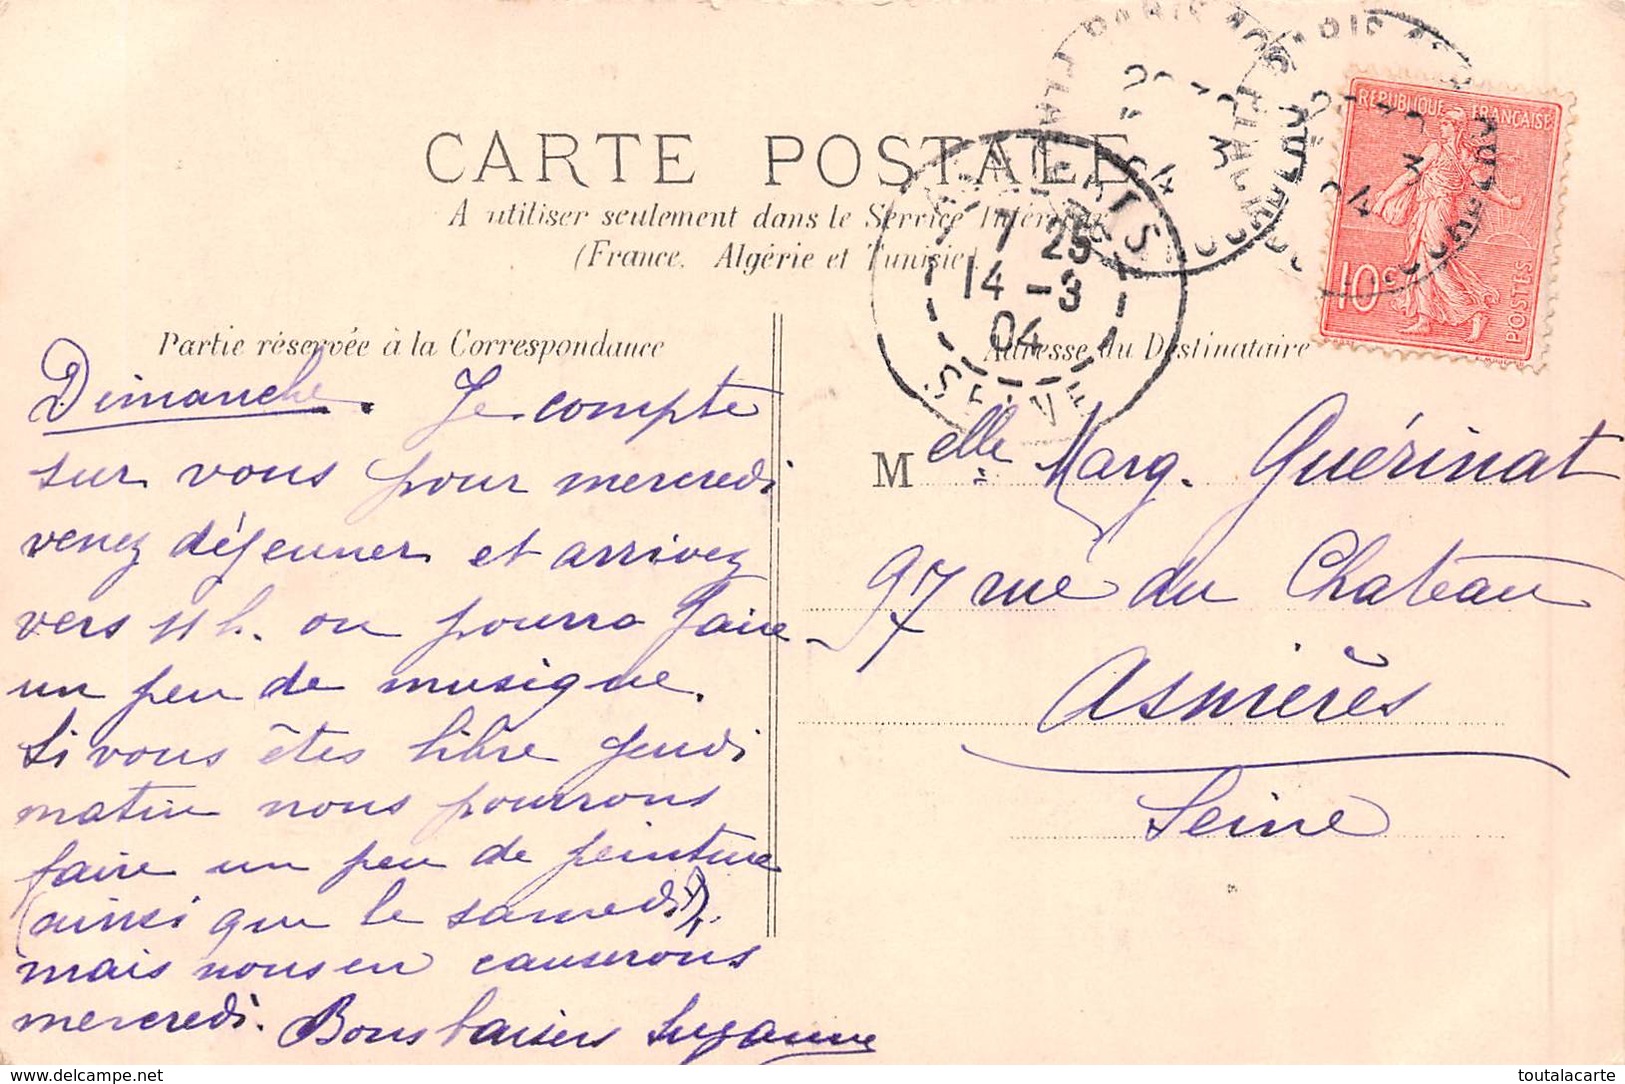 CARTE POSTALE
A utiliser seulement dans le Service Intérieur
(France, Algérie et Tunisie)
Partie réservée à la Correspondance
Adresse du Destinataire
RÉPUBLIQUE FRANÇAISE
10c
POSTES
7 25
14 - 3
04
SEINE
Dimanche. Je compte
sur vous pour mercredi
venez déjeuner et arrivez
vers 11 h. on pourra faire
un peu de musique.
Si vous êtes libre jeudi
matin nous pourrons
faire un peu de peinture
(ainsi que le samedi),
mais nous en causerons
mercredi. Bons baisers Suzanne
Melle Marg. Guérinat
97 rue du Chateau
Asnières
Seine
toutalacarte